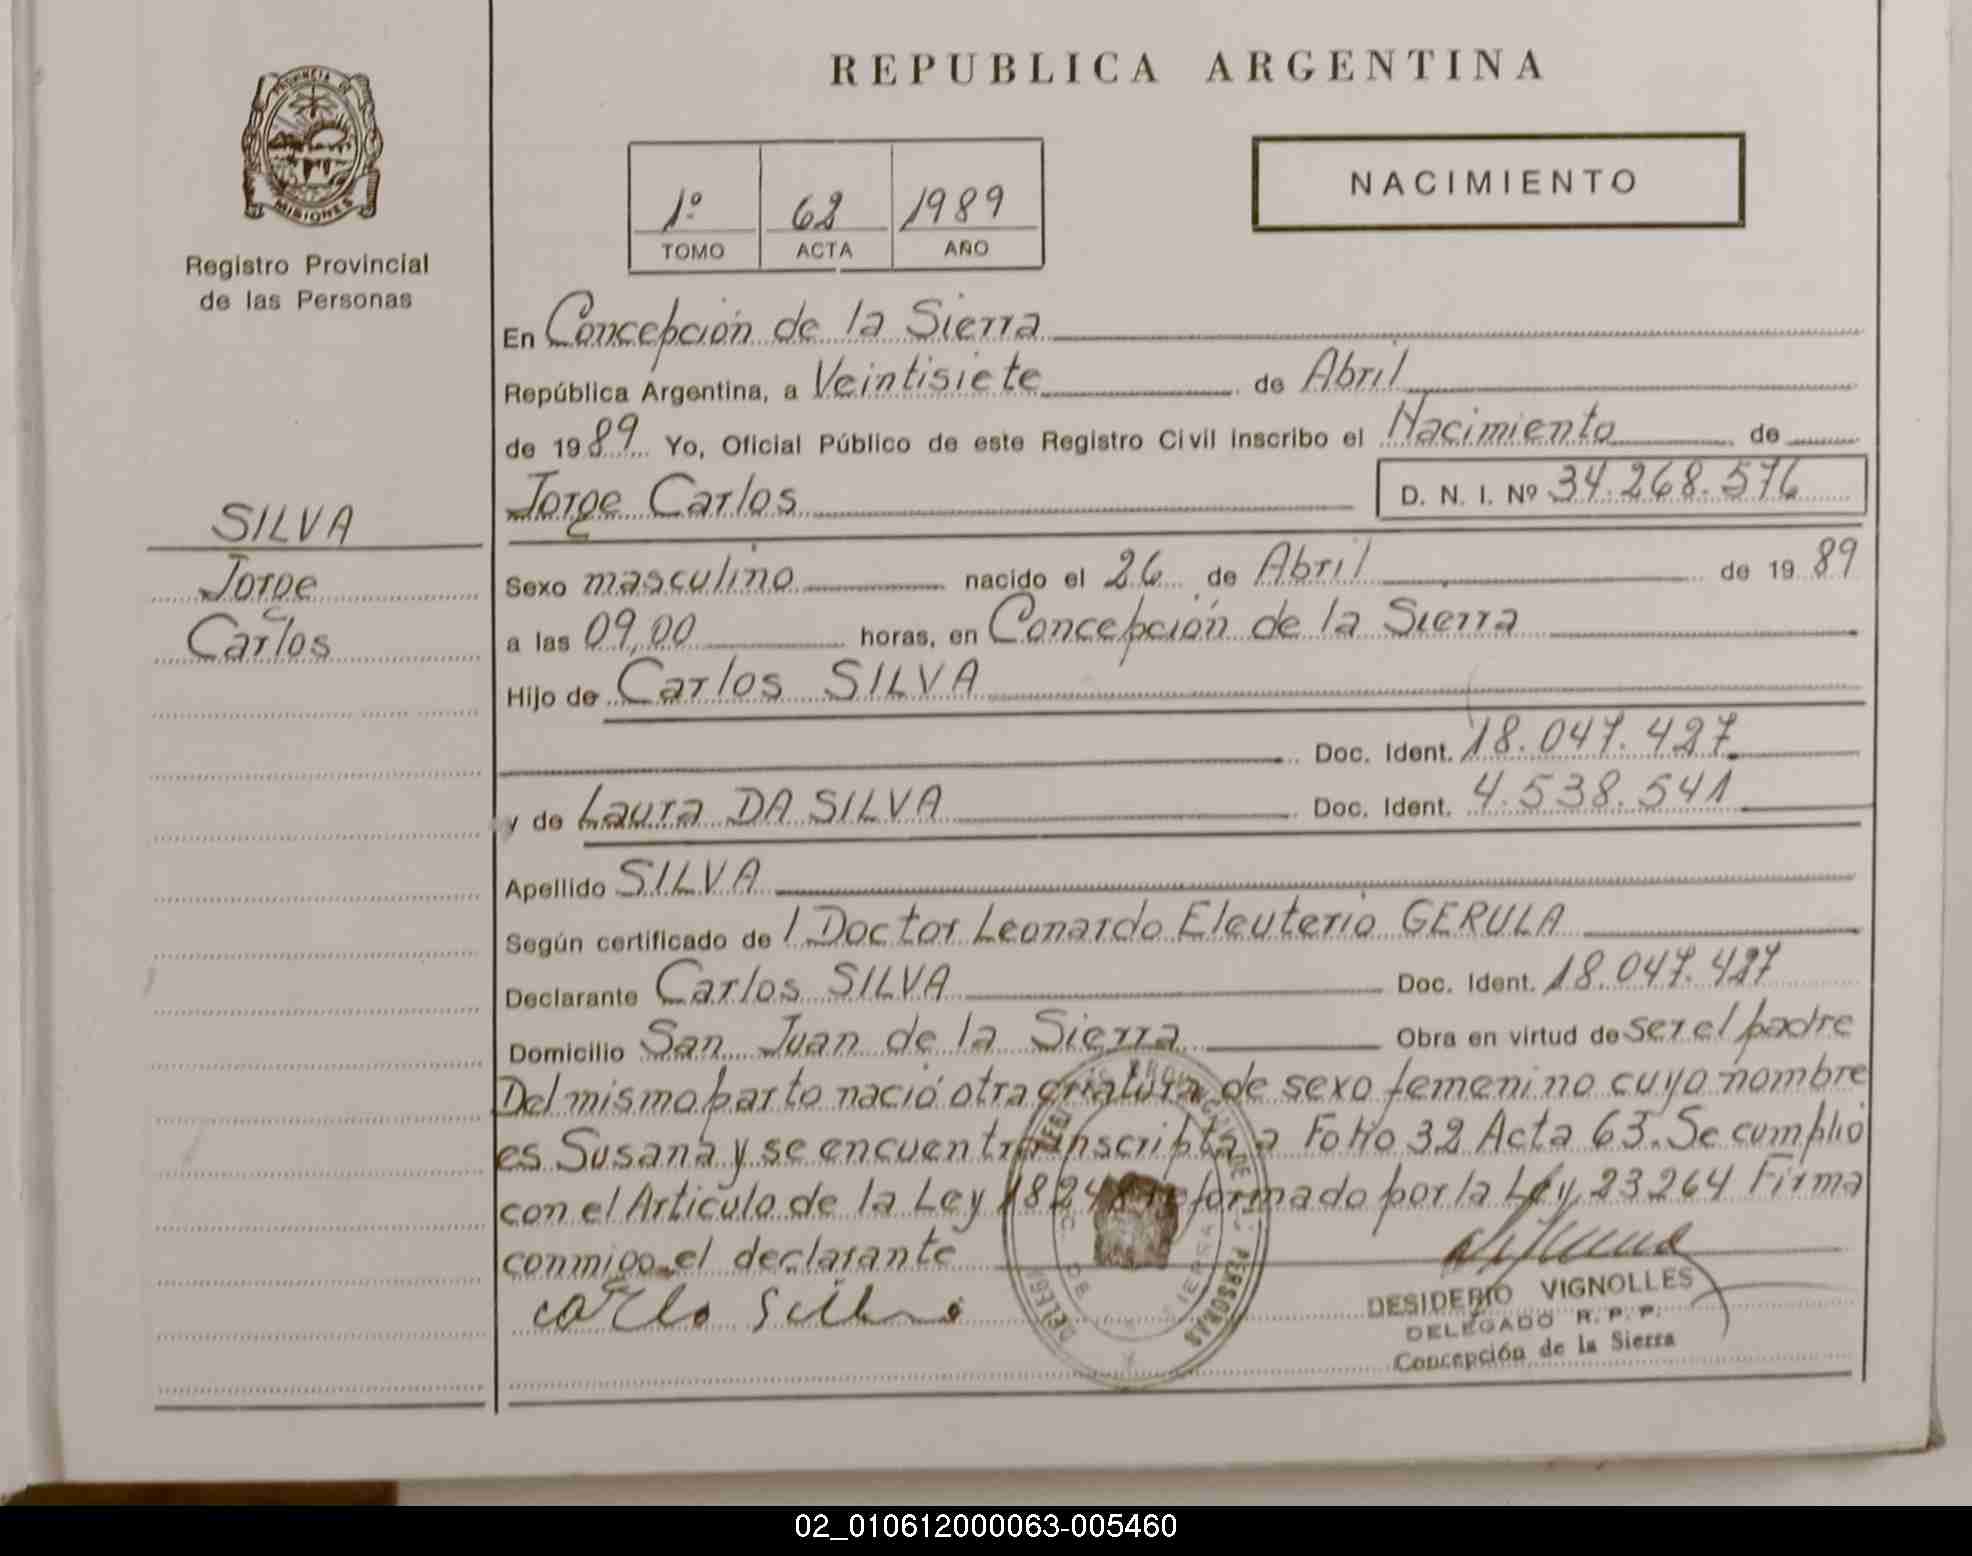 REPUBLICA ARGENTINA
PROVINCIA DE
MISIONES
Registro Provincial
de las Personas
1º 62 1989
TOMO ACTA AÑO
NACIMIENTO
En Concepción de la Sierra
República Argentina, a Veintisiete de Abril
de 1989 Yo, Oficial Público de este Registro Civil inscribo el Nacimiento de
Jorge Carlos D. N. I. Nº 34.268.576
SILVA
Jorge
Carlos
Sexo masculino nacido el 26 de Abril de 1989
a las 09,00 horas, en Concepción de la Sierra
Hijo de Carlos SILVA
Doc. Ident. 18.047.427
y de Laura DA SILVA Doc. Ident. 4.538.541
Apellido SILVA
Según certificado de l Doctor Leonardo Eleuterio GERULA
Declarante Carlos SILVA Doc. Ident. 18.047.427
Domicilio San Juan de la Sierra Obra en virtud de ser el padre
Del mismo parto nació otra criatura de sexo femenino cuyo nombre
es Susana y se encuentra inscripta a Folio 32 Acta 63. Se cumplió
con el Artículo de la Ley 18248 reformado por la Ley 23264 Firma
conmigo el declarante
Carlo Silva
DESIDERIO VIGNOLLES
DELEGADO R. P. P.
Concepción de la Sierra
02_010612000063-005460